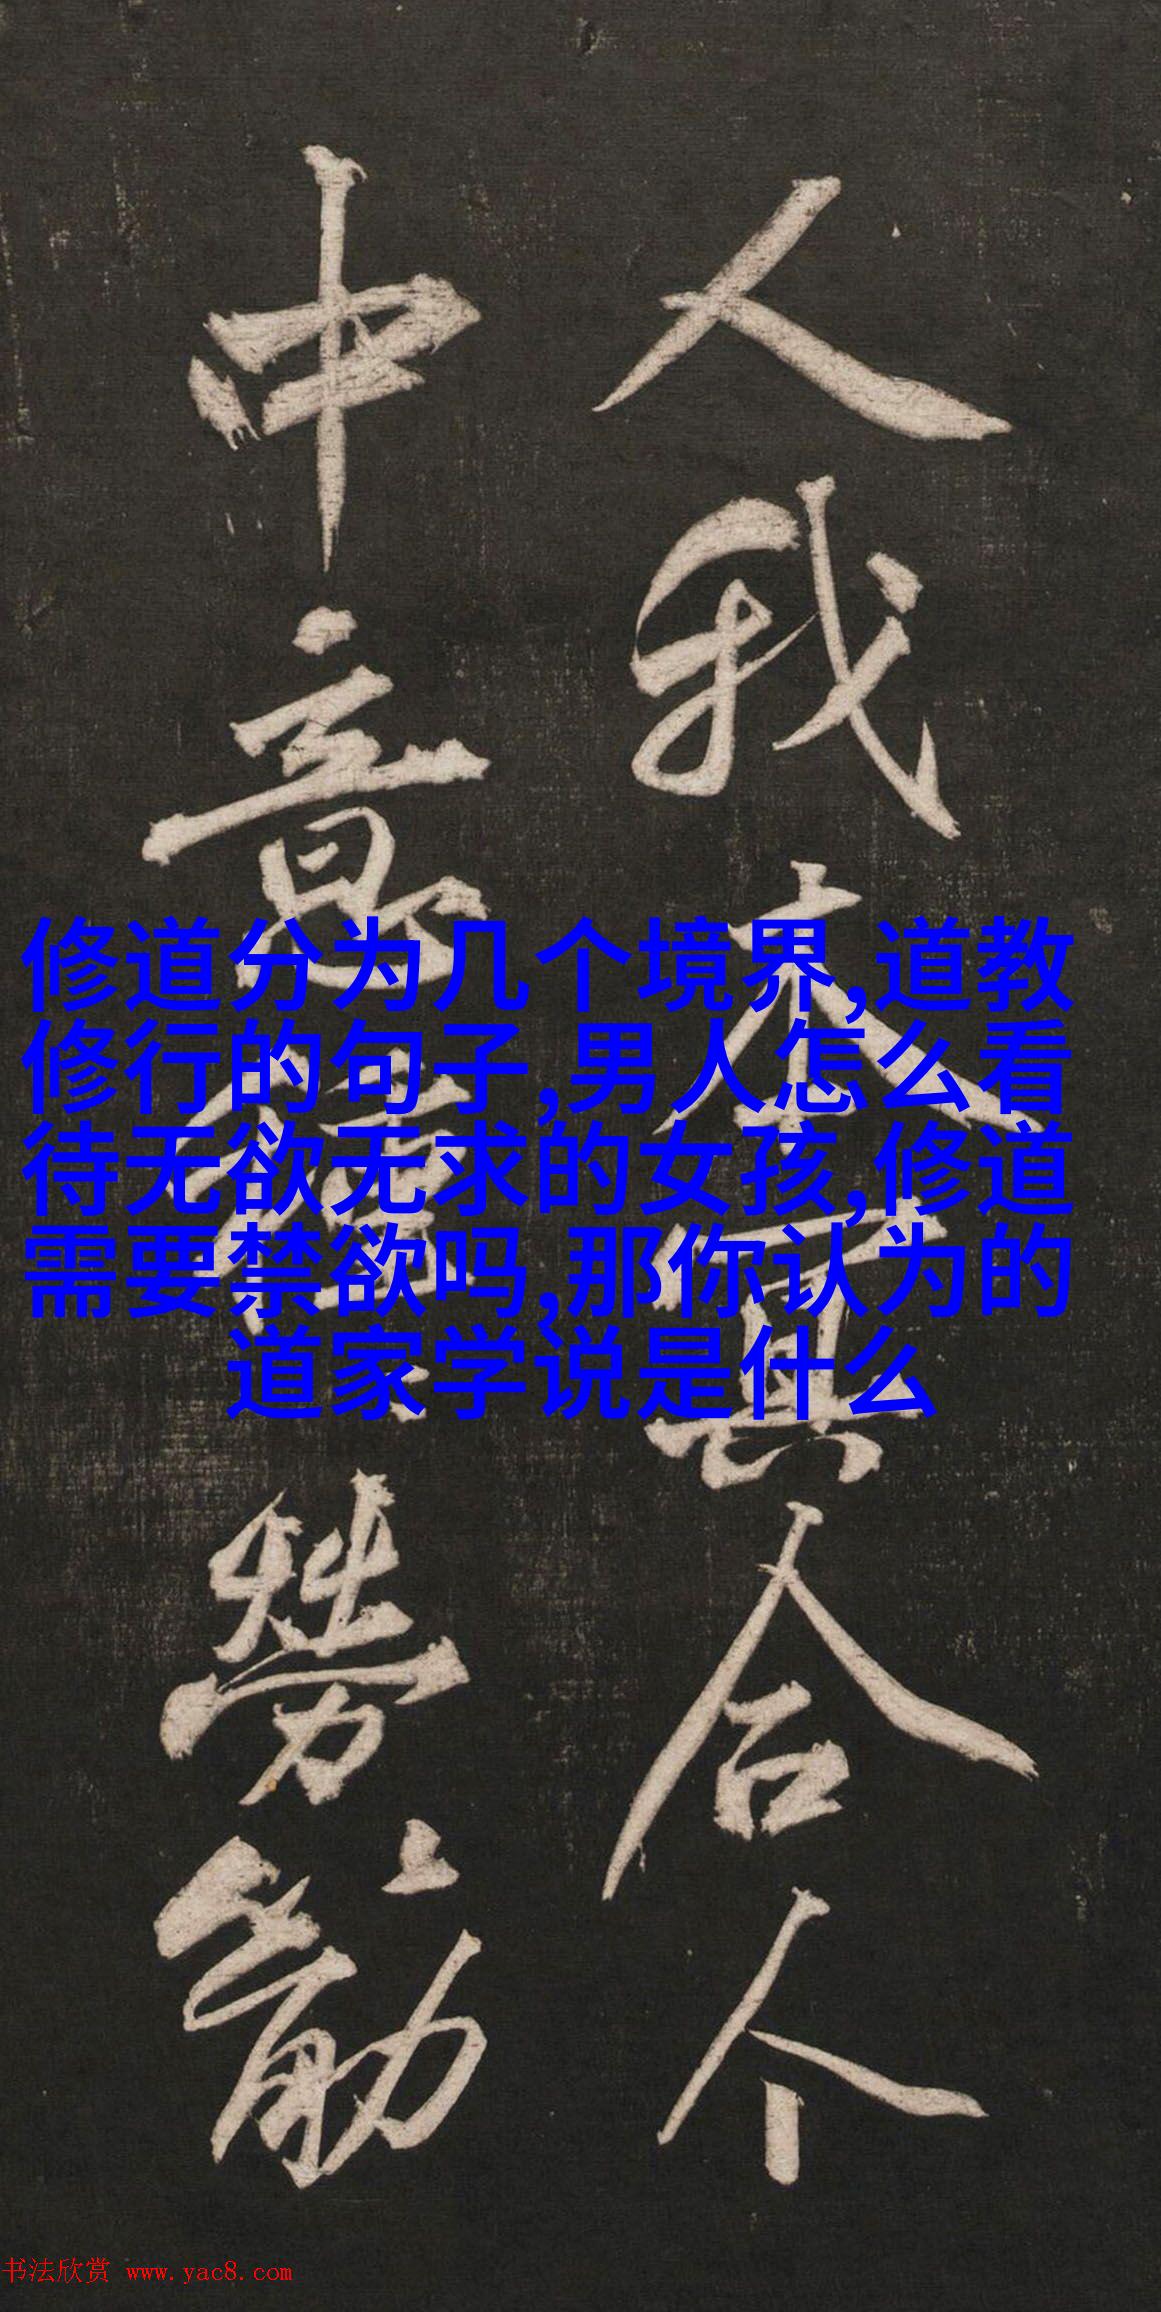 人我本合个
中意劳筋
修道分为几个境界,道教
修行的句子,男人怎么看
待无欲无求的女孩,修道
需要禁欲吗,那你认为的
道家学说是什么
书法欣赏 www.yac8.com